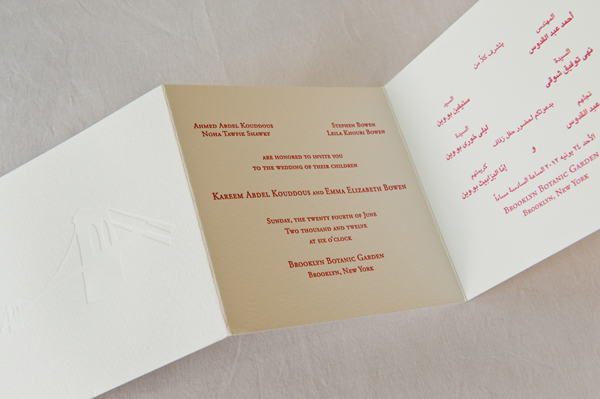 Ahmed Abdel Kouddous
Noha Tawfik Shawky
Stephen Bowen
Leila Khouri Bowen
are honored to invite you
to the wedding of their children
Kareem Abdel Kouddous and Emma Elizabeth Bowen
Sunday, the twenty fourth of June
Two thousand and twelve
at six o'clock
Brooklyn Botanic Garden
Brooklyn, New York
المهندس
أحمد عبد القدوس
السيدة
نهى توفيق شوقي
يتشرف كلاً من
السيد
ستيفين بووين
السيدة
ليلى خوري بووين
بدعوتكم لحضور حفل زفاف
نجلهم
عبد القدوس
و
كريمتهم
إمّا اليزابيث بووين
الأحد ٢٤ يونيه ٢٠١٢ الساعة السادسة مساءاً
Brooklyn Botanic Garden
Brooklyn, New York